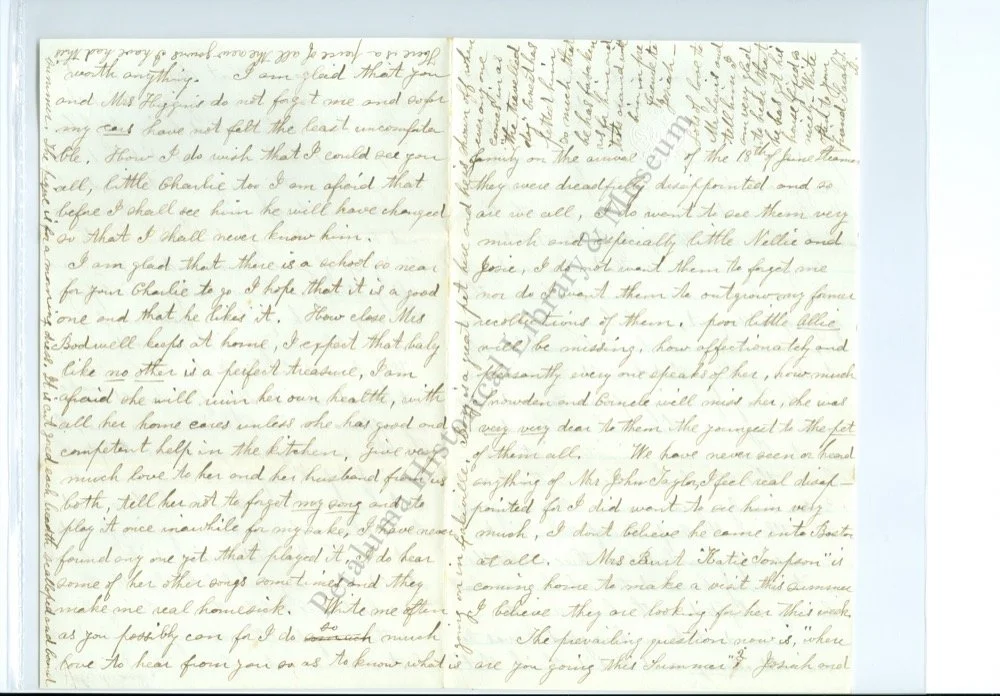 worth anything. I am glad that you
and Mrs Higgins do not forget me and so far
my ears have not felt the least uncomforta
ble. How I do wish that I could see you
all, little Charlie too I am afraid that
before I shall see him he will have changed
so that I shall never know him.
I am glad that there is a school so near
for your Charlie to go I hope that it is a good
one and that he likes it. How close Mrs
Bodwell keeps at home, I expect that baby
like no other is a perfect treasure, I am
afraid she will ruin her own health, with
all her home cares unless she has good and
competent help in the kitchen, Give very
much love to her and her husband from us
both, tell her not to forget my song and to
play it once inawhile for my sake, I have never
found any one yet that played it, I do hear
some of her other songs sometimes and they
make me real homesick. Write me often
as you possibly can for I do so much
love to hear from you so as to know what is
going on in
There is a piece of all the new gowns I have had this
summer. the is for a morning dress.
family on the arrival of the 18th of June Steamer
they were dreadfully disappointed and so
are we all, I do want to see them very
much and especially little Nellie and
Josie, I do not want them to forget me
nor do I want them to outgrow my former
recollections of them. poor little Allie
will be missing, how affectionately and
pleasantly every one speaks of her, how much
Snowden and will miss her, she was
very very dear to them the youngest to the pet
of them all. We have never seen or heard
anything of Mrs John Taylor, I feel real disap-
pointed for I did want to see him very
much, I don't believe he came into Boston
at all. Mrs Burt "Katie Tompson" is
coming home to make a visit this summer
I believe they are looking for her this week
The prevailing question now is, "where
are you going this Summer"? Josiah and
is a great pet here and he is
Lots of love to
Mr H. and
tell him I
am very glad
to hear that
he has got his
Write
friend